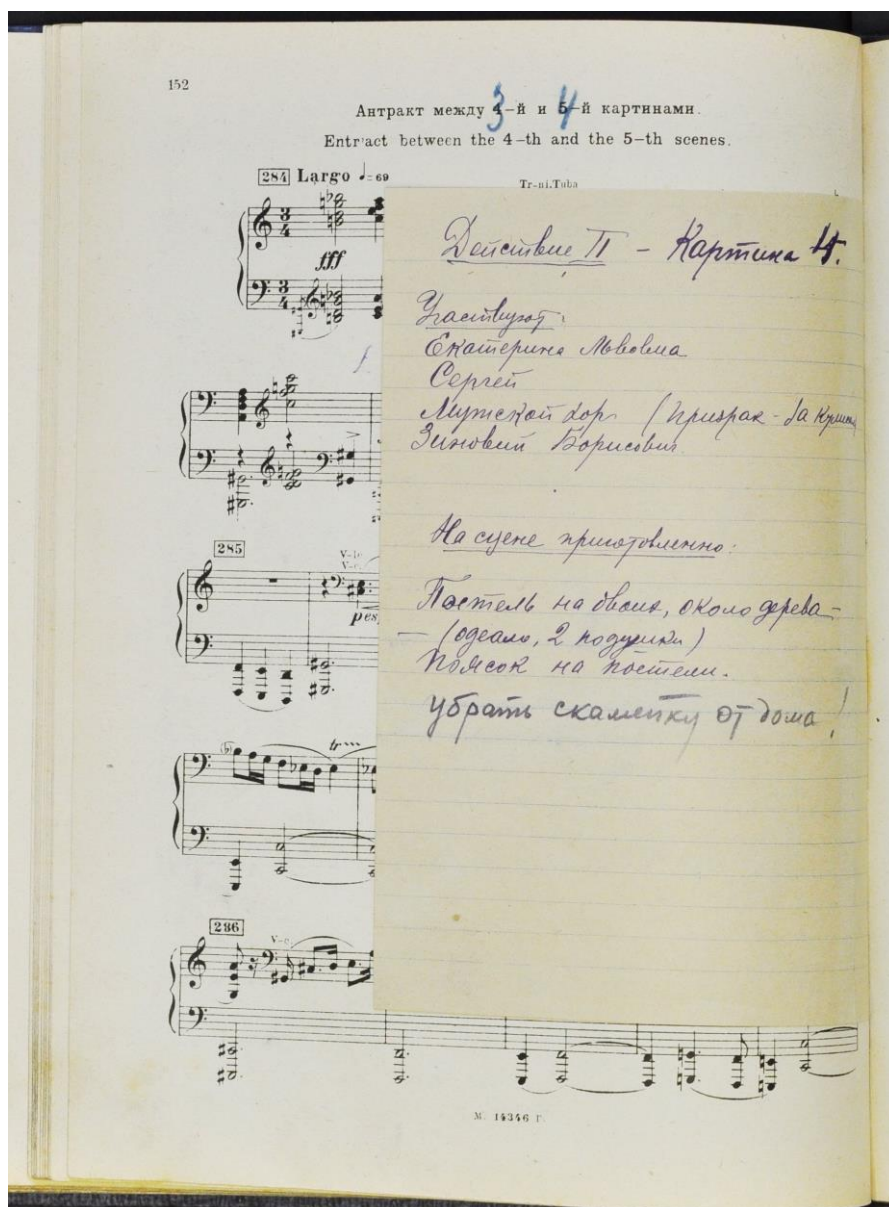 152
3 4
Антракт между 4-й и 5-й картинами.
Entr'act between the 4-th and the 5-th scenes.
284 Largo ♩=69
Tr-ni.Tuba
fff
285
V-le
V-c.
pes
tr
286
V-c.
М. 14346 Г.
Действие II – Картина 4.
Участвуют:
Екатерина Львовна
Сергей
Мужской хор (Призрак - за кулис
Зиновий Борисович
На сцене приготовленно:
Постель на двоих, около дерева –
– (одеало, 2 подушки)
Поясок на постели.
убрать скамейку от дома!